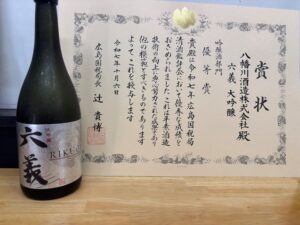 賞状
八幡川酒造株式会社殿
六義 大吟醸
吟醸酒部門
優等賞
貴殿は令和七年広島国税局
清酒鑑評会において優秀な成績を
おさめられました これは平素酒造
技術の向上に
他の模範とすべきものであります
よってこれを授与します
令和七年十月六日
広島国税局長 辻 貴博
大吟醸
六義
RIKUGI